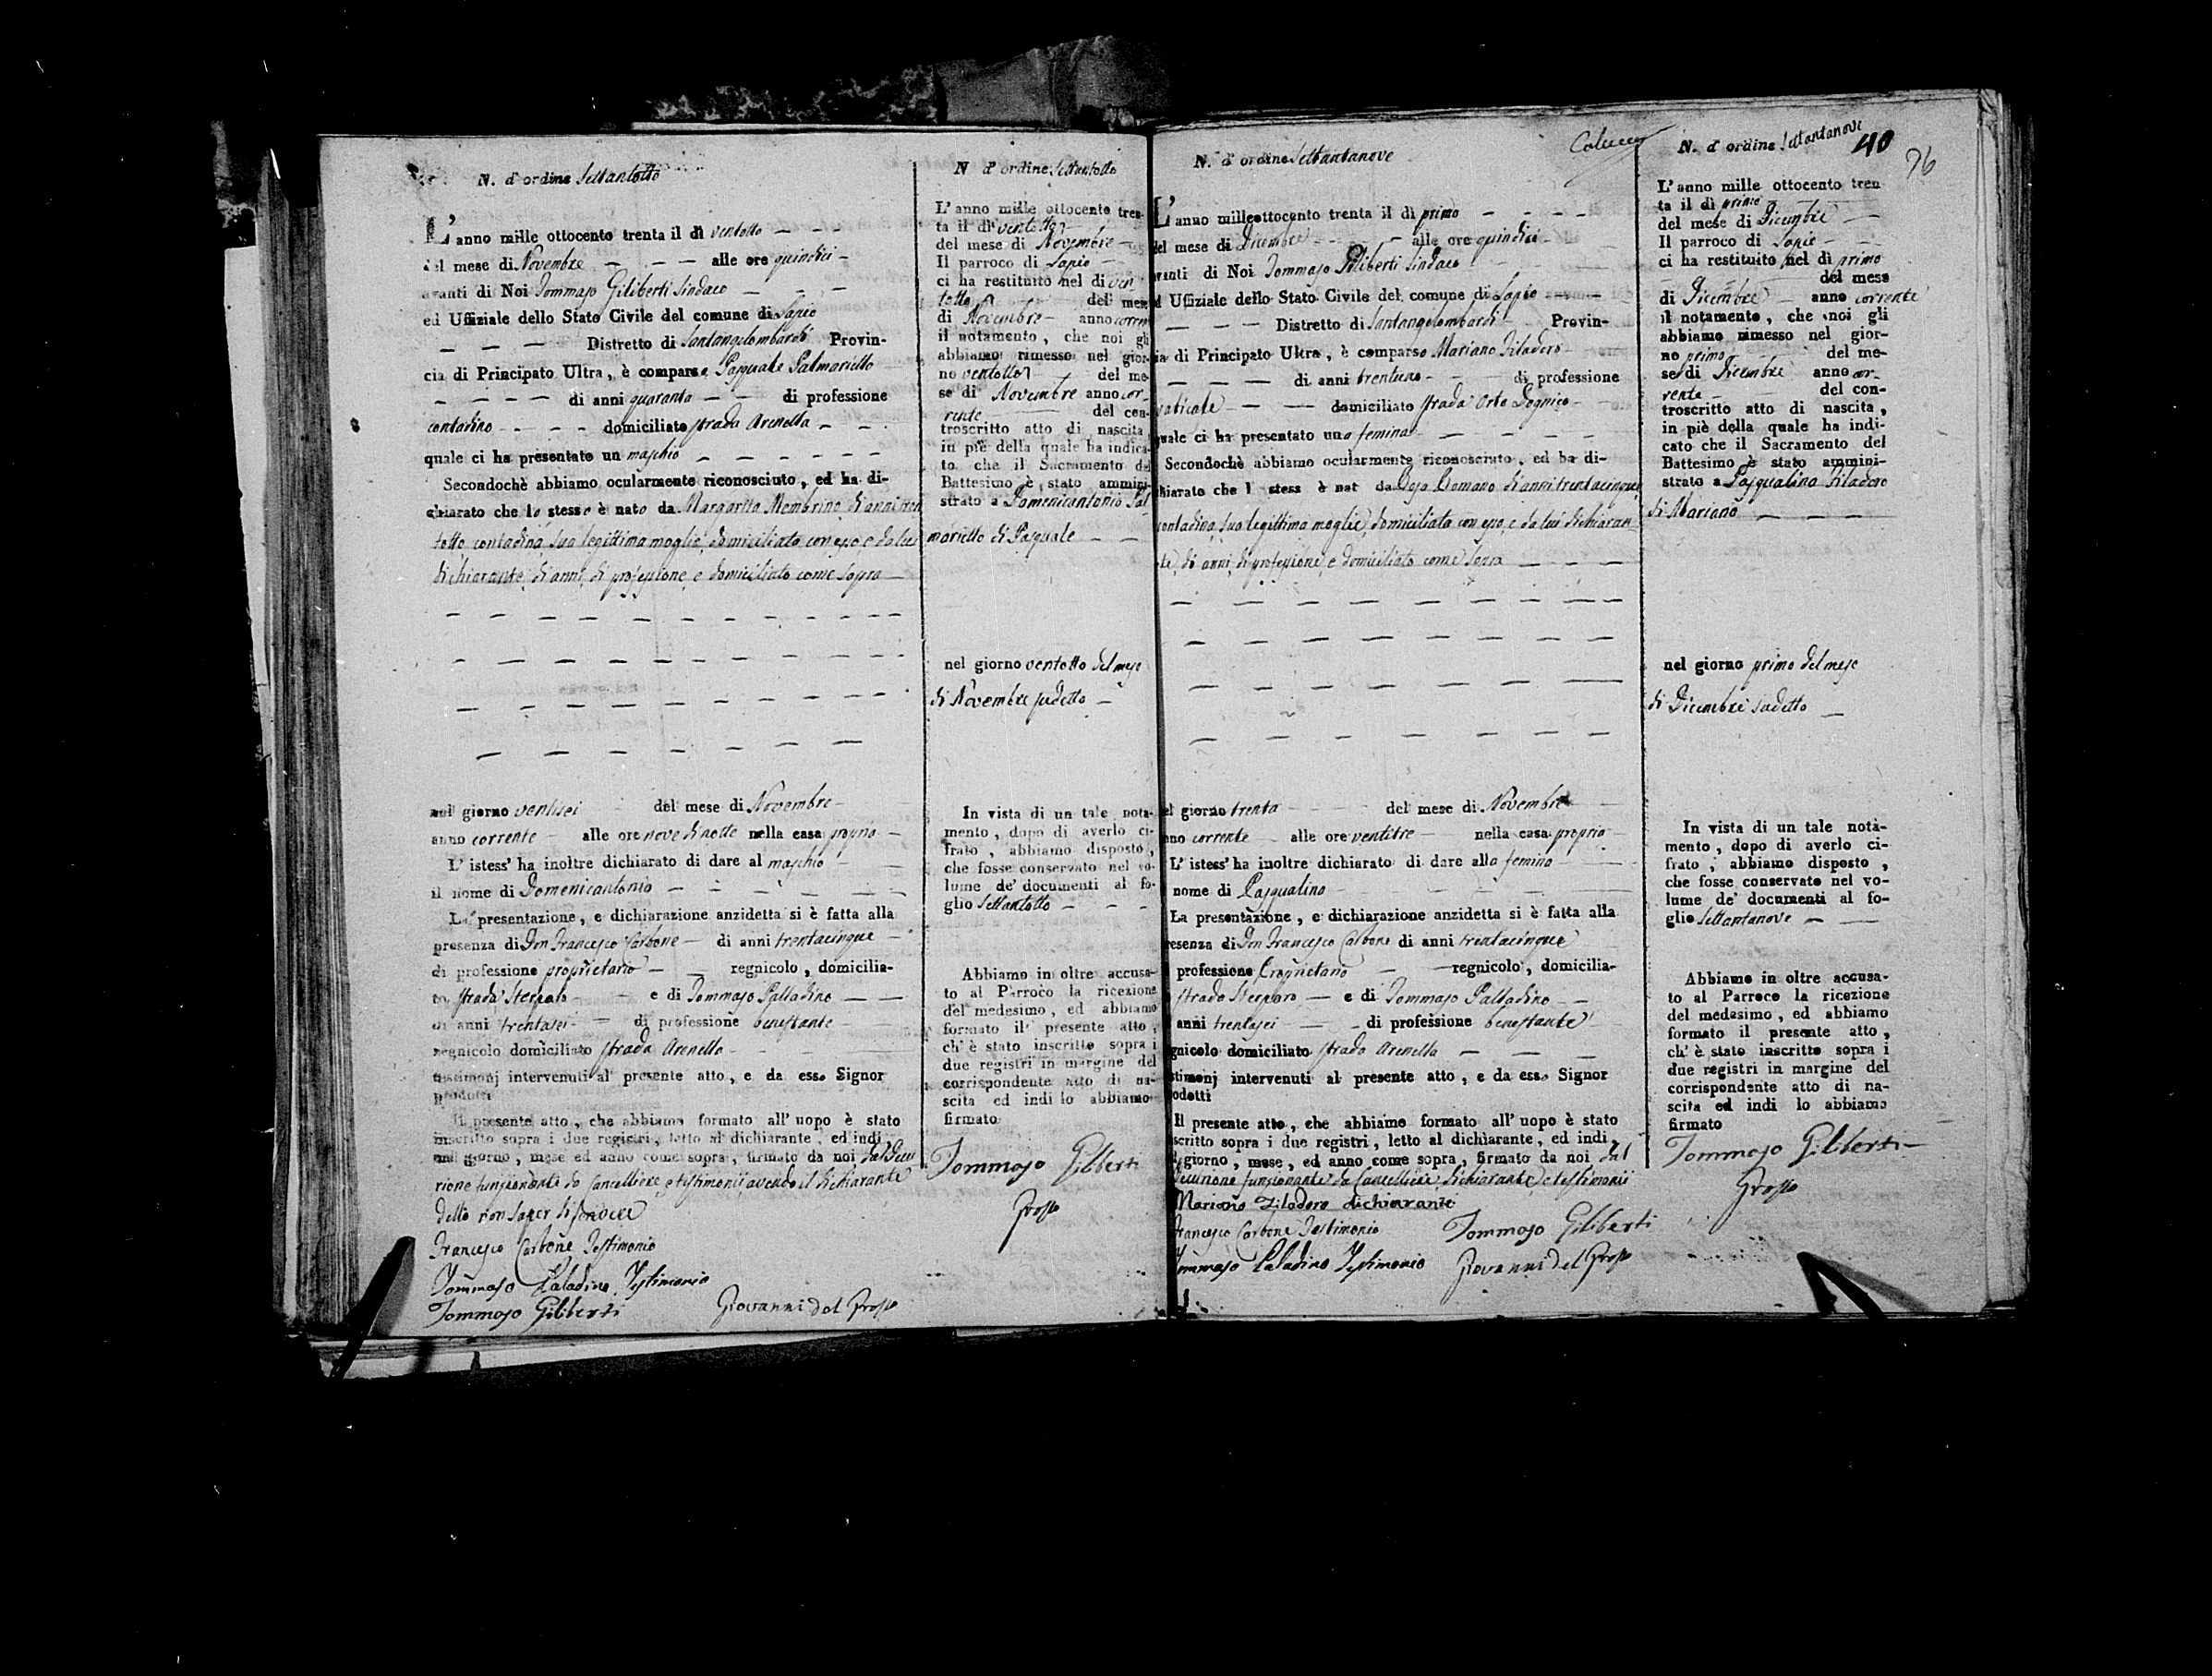 N. d'ordine Settantotto
L'anno mille ottocento trenta il dì ventotto
del mese di Novembre alle ore quindici
avanti di Noi Tommaso Giliberti Sindaco
ed Uffiziale dello Stato Civile del comune di Lapio
Distretto di Santangelombardi Provin-
cia di Principato Ultra, è comparso Pasquale Palmariello
di anni quaranta di professione
contadino domiciliato strada Arenella
quale ci ha presentato un maschio
Secondochè abbiamo ocularmente riconosciuto, ed ha di-
chiarato che lo stesso è nato da Margarita Membrino di anni tren
totto contadina sua legittima moglie, domiciliata con esso e da lui
dichiarante di anni, di professione, e domiciliato come sopra
nel giorno ventisei del mese di Novembre
anno corrente alle ore nove di notte nella casa propria
L'istess' ha inoltre dichiarato di dare al maschio
il nome di Domenicantonio
La presentazione, e dichiarazione anzidetta si è fatta alla
presenza di Don Francesco Carbone di anni trentacinque
di professione proprietario regnicolo, domicilia-
to strada e di Tommaso Palladino
di anni trentasei di professione benestante
regnicolo domiciliato strada Arenella
testimonj intervenuti al presente atto, e da esso Signor
prodotti
Il presente atto, che abbiamo formato all'uopo è stato
inscritto sopra i due registri, letto al dichiarante, ed indi
nel giorno, mese ed anno come sopra, firmato da noi dal Decu
rione funzionante da Cancelliere, e testimonii avendo il dichiarante
detto non saper scrivere
Francesco Carbone Testimonio
Tommaso Paladino Testimonio
Tommaso Giliberti Giovanni del Grosso
N d'ordine Settantotto
L'anno mille ottocento tren-
ta il dì ventotto
del mese di Novembre
Il parroco di Lapio
ci ha restituito nel dì ven
totto del mese
di Novembre anno corren
il notamento, che noi gli
abbiamo rimesso nel gior-
no ventotto del me-
se di Novembre anno cor-
rente del con-
troscritto atto di nascita
in piè della quale ha indica-
to che il Sacramento del
Battesimo è stato ammini-
strato a Domenicantonio Pal
mariello di Pasquale
nel giorno ventotto del mese
di Novembre sudetto
In vista di un tale nota-
mento, dopo di averlo ci-
frato, abbiamo disposto,
che fosse conservato nel vo-
lume de' documenti al fo-
glio Settantotto
Abbiamo in oltre accusa-
to al Parroco la ricezione
del medesimo, ed abbiamo
formato il presente atto,
ch'è stato inscritto sopra i
due registri in margine del
corrispondente atto di na-
scita ed indi lo abbiamo
firmato
Tommaso Giliberti
Grosso
N. d'ordine Settantanove
L'anno milleottocento trenta il dì primo
del mese di Dicembre alle ore quindici
avanti di Noi Tommaso Giliberti Sindaco
ed Uffiziale dello Stato Civile del comune di Lapio
Distretto di Santangelombardi Provin-
cia di Principato Ultra, è comparso Mariano Filadoro
di anni trentuno di professione
vaticale domiciliato strada Orto
quale ci ha presentato una femina
Secondochè abbiamo ocularmente riconosciuto, ed ha di-
chiarato che l stess è nat da Romano di anni trentacinque
contadina sua legittima moglie, domiciliata con esso, e da lui dichiaran
te, di anni, di professione, e domiciliato come sopra
nel giorno trenta del mese di Novembre
anno corrente alle ore ventitre nella casa propria
L'istess' ha inoltre dichiarato di dare alla femina
nome di Pasqualina
La presentazione, e dichiarazione anzidetta si è fatta alla
presenza di Don Francesco Carbone di anni trentacinque
professione Proprietario regnicolo, domicilia-
strada e di Tommaso Palladino
anni trentasei di professione benestante
regnicolo domiciliato strada Arenella
testimonj intervenuti al presente atto, e da esso Signor
prodotti
Il presente atto, che abbiamo formato all'uopo è stato
inscritto sopra i due registri, letto al dichiarante, ed indi
giorno, mese, ed anno come sopra, firmato da noi dal
Decurione funzionante da Cancelliere, dichiarante, e testimonii
Mariano Filadoro dichiarante
Francesco Carbone Testimonio Tommaso Giliberti
Tommaso Paladino Testimonio Giovanni del Grosso
N. d'ordine Settantanove
40
76
L'anno mille ottocento tren
ta il dì primo
del mese di Dicembre
Il parroco di Lapio
ci ha restituito nel dì primo
del mese
di Dicembre anno corrente
il notamento, che noi gli
abbiamo rimesso nel gior-
no primo del me-
se di Dicembre anno cor-
rente del con-
troscritto atto di nascita,
in piè della quale ha indi-
cato che il Sacramento del
Battesimo è stato ammini-
strato a Pasqualina Filadoro
di Mariano
nel giorno primo del mese
di Dicembre sudetto
In vista di un tale nota-
mento, dopo di averlo ci-
frato, abbiamo disposto,
che fosse conservato nel vo-
lume de' documenti al fo-
glio Settantanove
Abbiamo in oltre accusa-
to al Parroco la ricezione
del medesimo, ed abbiamo
formato il presente atto,
ch'è stato inscritto sopra i
due registri in margine del
corrispondente atto di na-
scita ed indi lo abbiamo
firmato
Tommaso Giliberti
Grosso